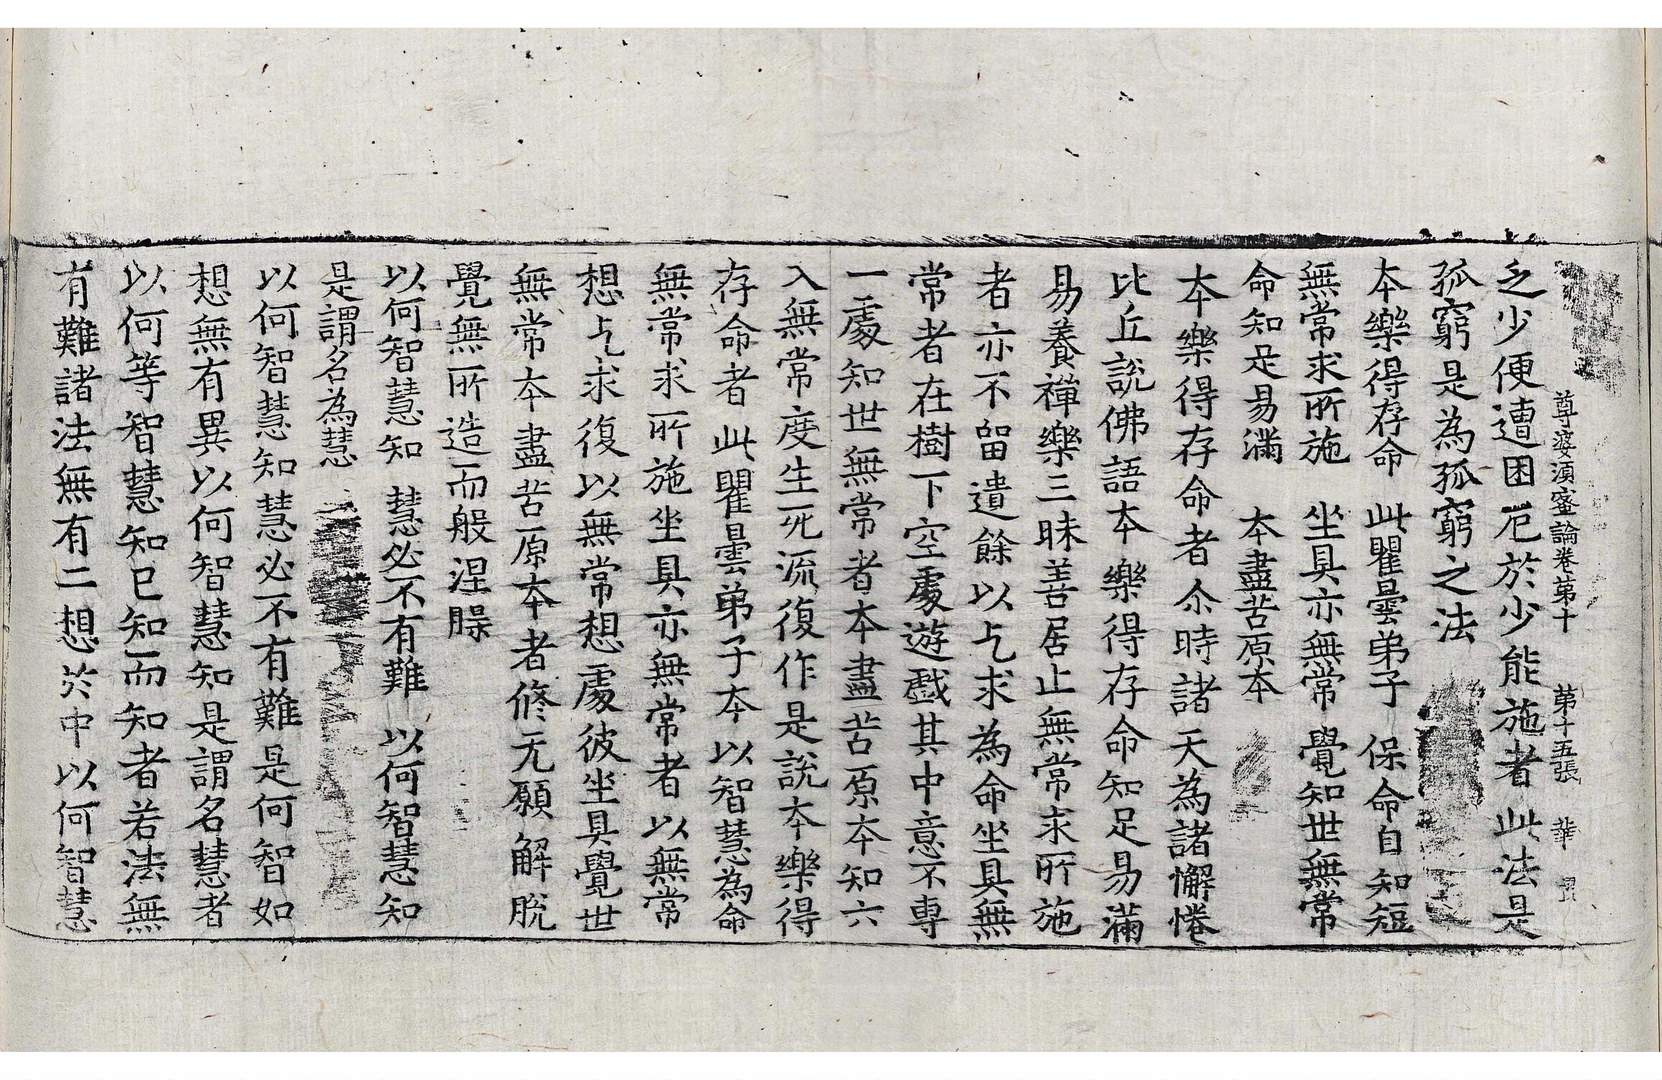 尊婆湏蜜論卷第十　第十五張　華
乏少便遭困厄於少能施者此法是
孤窮是為孤窮之法
本樂得存命　此瞿曇弟子　保命自知短
無常求所施　坐具亦無常　覺知世無常
命知足易滿　本盡苦原本
本樂得存命者尒時諸天為諸懈惓
比丘說佛語本樂得存命知足易滿
易養禪樂三昧善居止無常求所施
者亦不留遺餘以乞求為命坐具無
常者在樹下空處遊戲其中意不專
一處知世無常者本盡苦原本知六
入無常度生死流復作是說本樂得
存命者此瞿曇弟子本以智慧為命
無常求所施坐具亦無常者以無常
想乞求復以無常想處彼坐具覺世
無常本盡苦原本者修无願解脫
覺無所造而般涅臊
以何智慧知　慧必不有難　以何智慧知
是謂名為慧
以何智慧知慧必不有難是何智如
想無有異以何智慧知是謂名慧者
以何等智慧知已知而知者若法無
有難諸法無有二想於中以何智慧